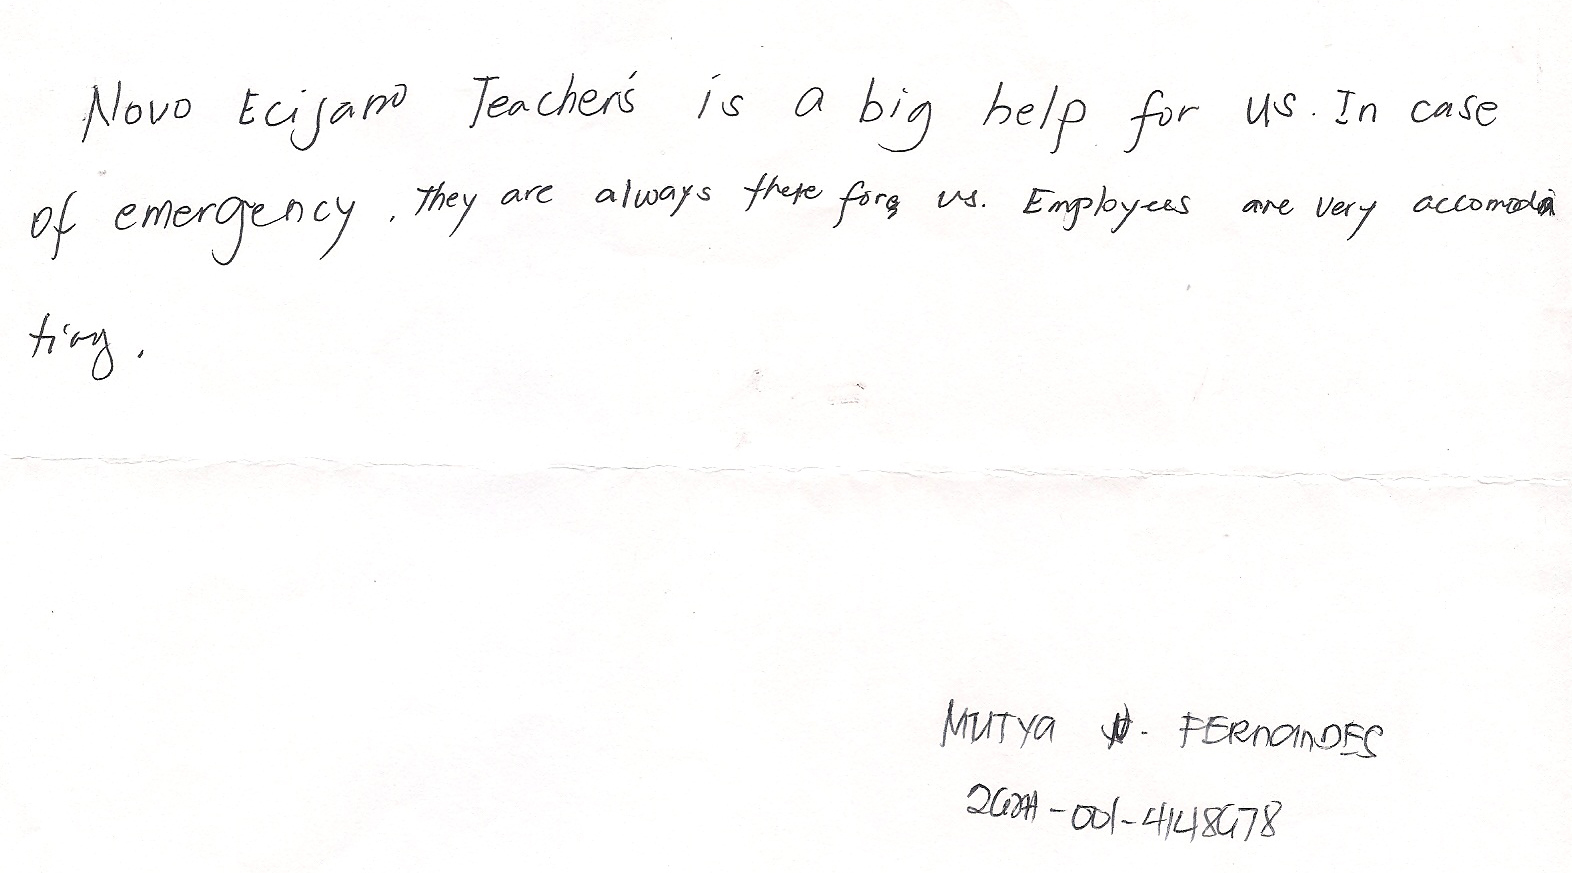 Novo Ecijano Teacher's is a big help for us. In case
of emergency, they are always there for us. Employees are very accomoda
ting.
MUTYA N. FERNANDES